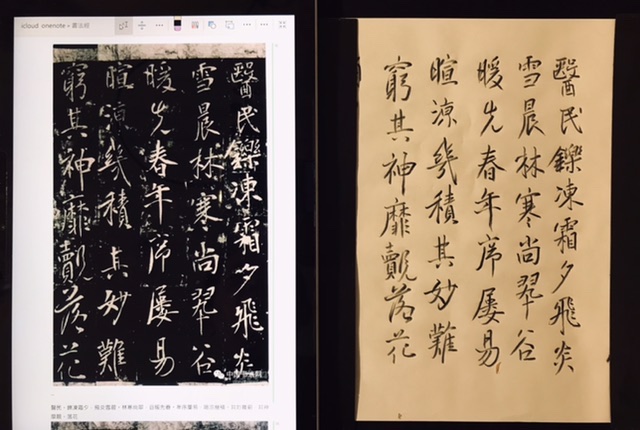 icloud onenote
醫民鑠凍霜夕飛炎
雪晨林寒尚翠谷
暖先春年序屢易
暄涼幾積其妙難
窮其神靡覿落花
醫民鑠凍霜夕飛炎
雪晨林寒尚翠谷
暖先春年序屢易
暄涼幾積其妙難
窮其神靡覿落花